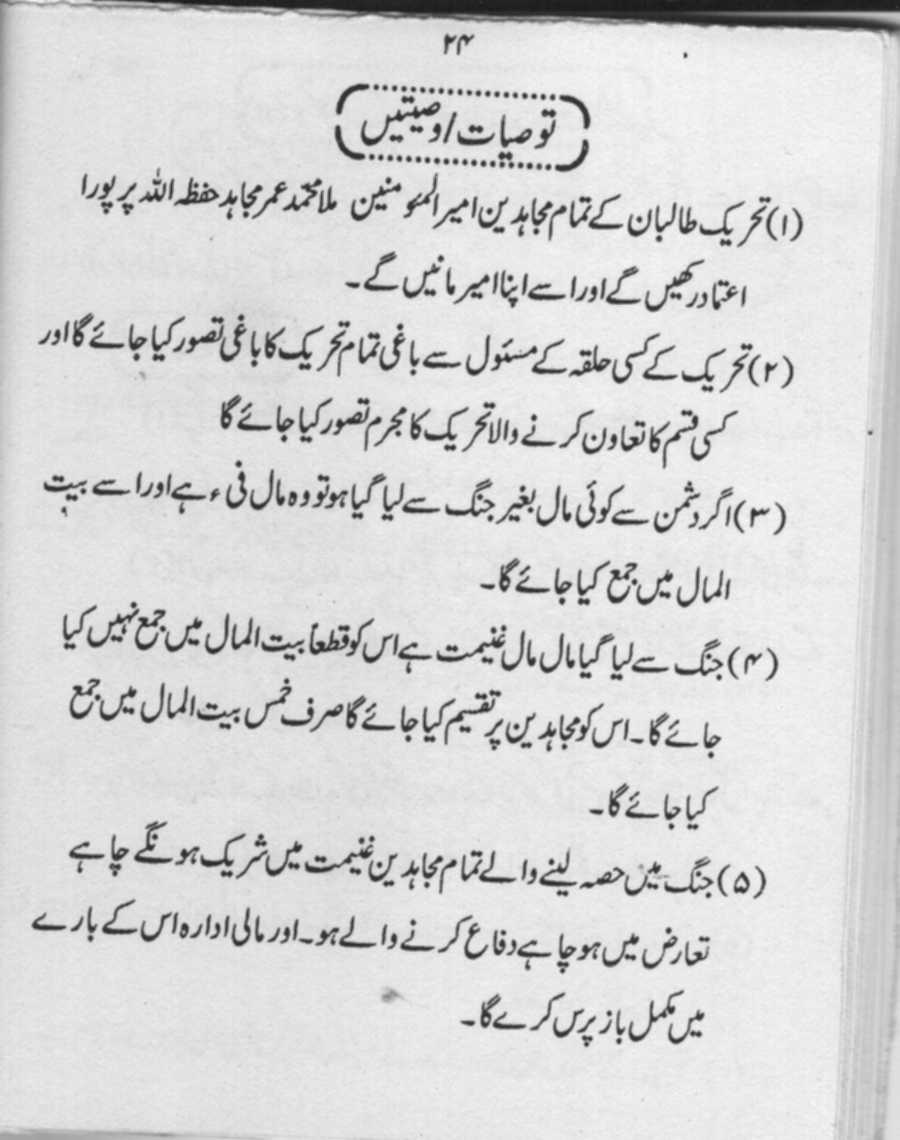 ۲۴
توصیات/وصیتیں
(۱) تحریک طالبان کے تمام مجاہدین امیر المئومنین ملا محمد عمر مجاہد حفظہ اللہ پر پورا
اعتماد رکھیں گے اور اسے اپنا امیر مانیں گے۔
(۲) تحریک کے کسی حلقہ کے مسئول سے باغی تمام تحریک کا باغی تصور کیا جائے گا اور
کسی قسم کا تعاون کرنے والا تحریک کا مجرم تصور کیا جائے گا
(۳) اگر دشمن سے کوئی مال بغیر جنگ سے لیا گیا ہو تو وہ مال فیء ہے اور اسے بیت
المال میں جمع کیا جائے گا۔
(۴) جنگ سے لیا گیا مال مال غنیمت ہے اس کو قطعاً بیت المال میں جمع نہیں کیا
جائے گا۔ اس کو مجاہدین پر تقسیم کیا جائے گا صرف خمس بیت المال میں جمع
کیا جائے گا۔
(۵) جنگ میں حصہ لینے والے تمام مجاہدین غنیمت میں شریک ہونگے چاہے
تعارض میں ہو چاہے دفاع کرنے والے ہو۔ اور مالی ادارہ اس کے بارے
میں مکمل باز پرس کرے گا۔